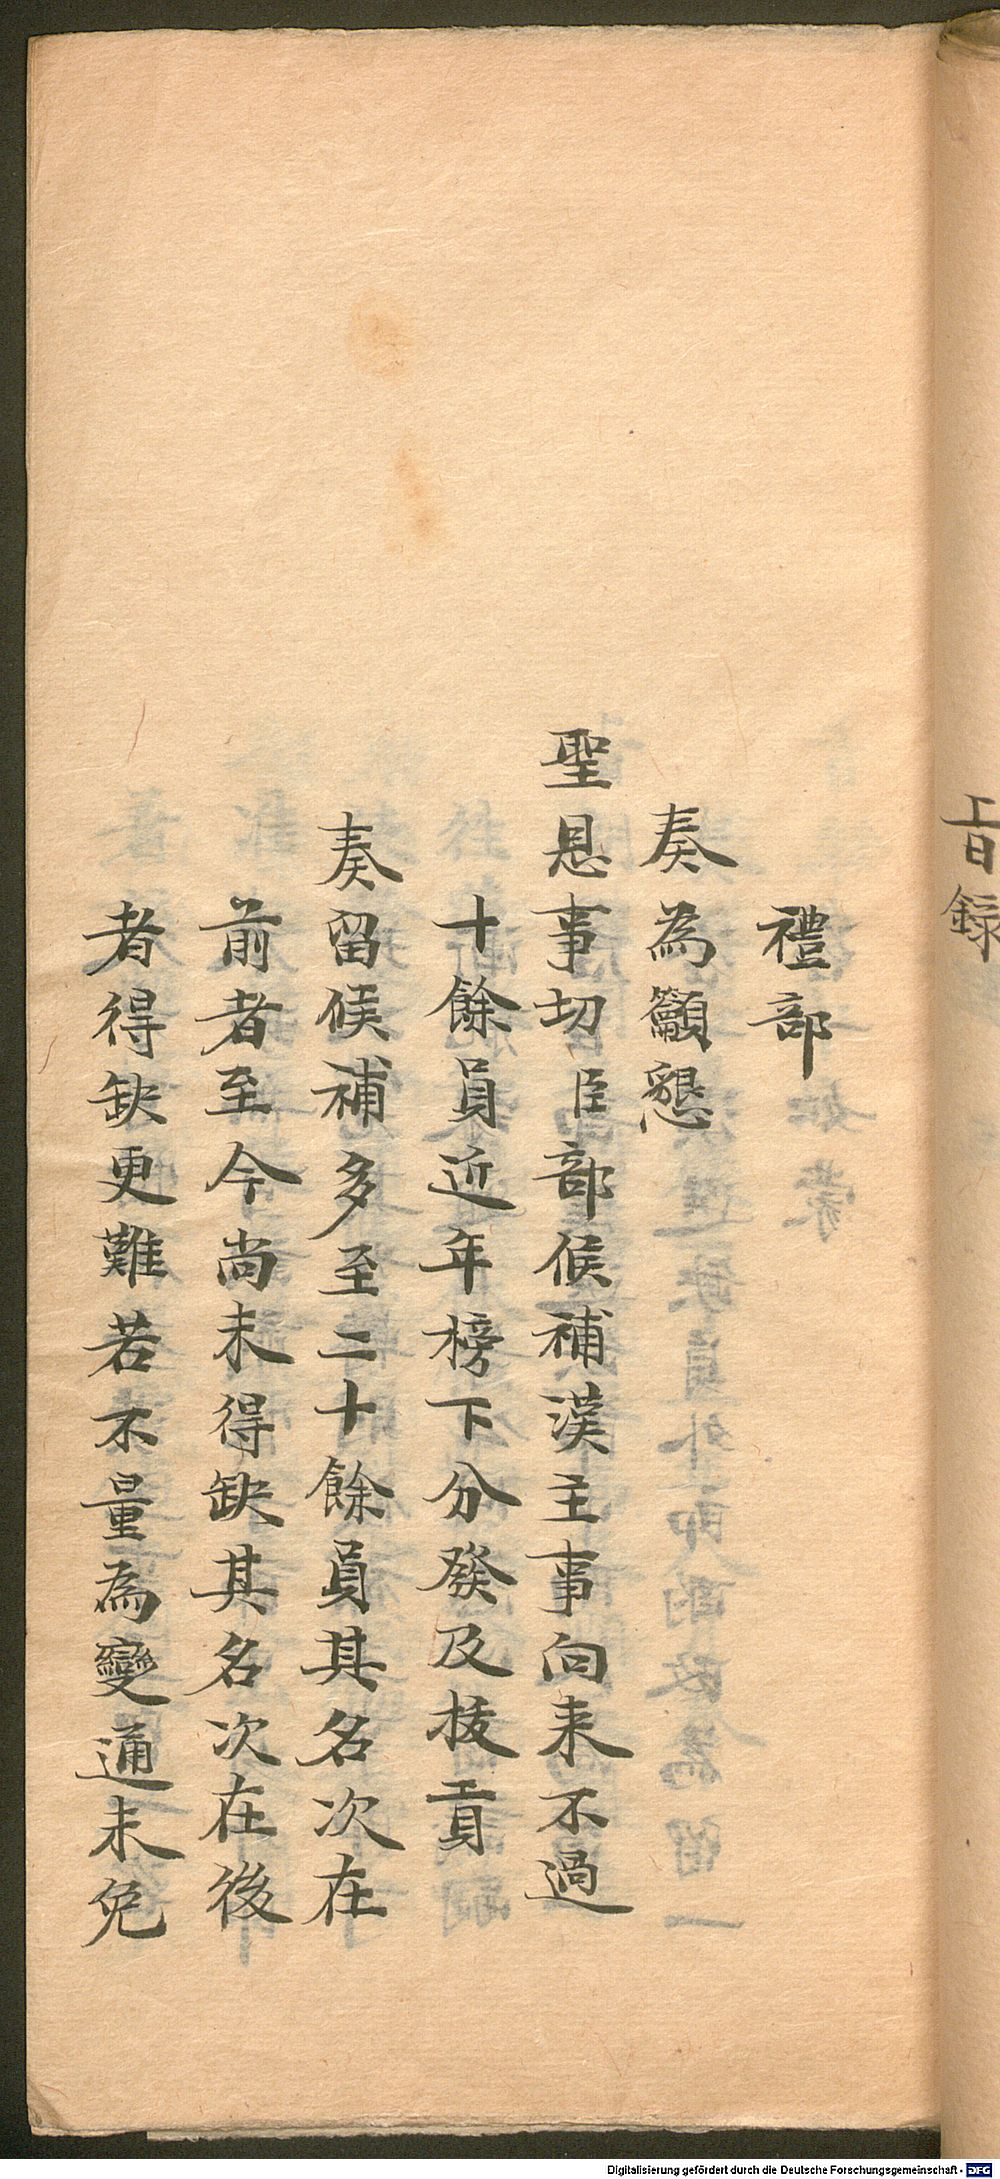 旨録
禮部
奏為籲懇
聖恩事切臣部候補漢主事向来不過
十餘員近年榜下分發及拔貢
奏留候補多至二十餘員其名次在
前者至今尚未得缺其名次在後
者得缺更難若不量為變通未免
Digitalisierung gefördert durch die Deutsche Forschungsgemeinschaft - DFG